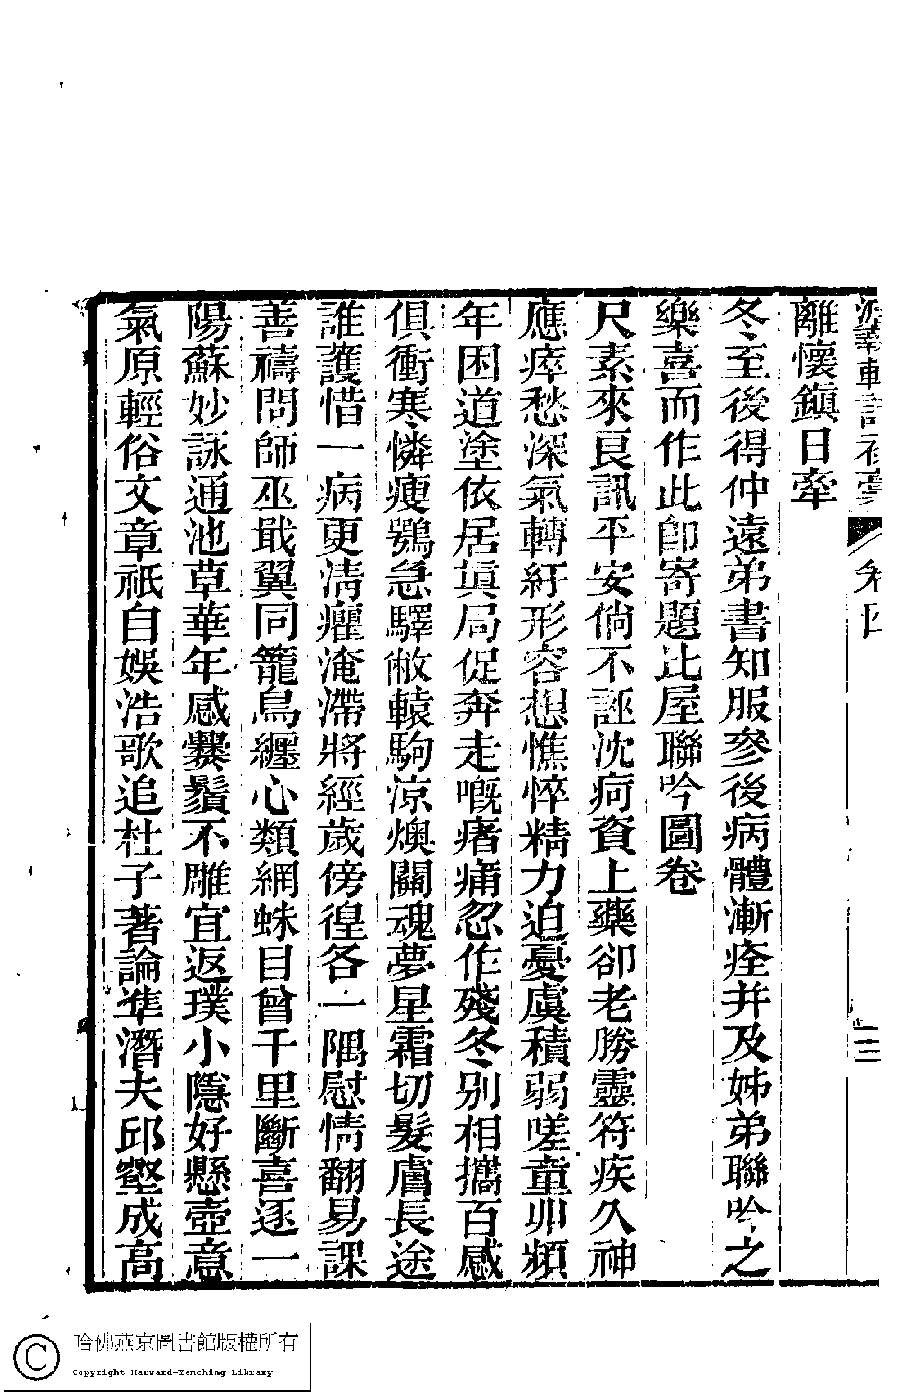 卷四
三
離懷鎭日牽
冬至後得仲遠弟書知服參後病體漸痊并及姊弟聯吟之
樂喜而作此卽寄題比屋聯吟圖卷
尺素來良訊平安倘不誣沈疴資上藥卻老勝靈符疾久神
應瘁愁深氣轉紆形容想憔悴精力迫憂虞積弱嗟童丱頻
年困道塗依居塡局促奔走嘅痡瘏忽作殘冬别相攜百感
俱衝寒憐瘦鶚急驛敝轅駒涼燠關魂夢星霜切髮膚長途
誰護惜一病更淸癯淹滯將經歲傍徨各一隅慰情翻易課
善禱問師巫戢翼同籠鳥纏心類網蛛目曾千里斷喜逐一
陽蘇妙詠通池草華年感爨鬚不雕宜返璞小隱好懸壺意
氣原輕俗文章祇自娛浩歌追杜子著論準潛夫邱壑成高
哈佛燕京圖書館版權所有
Copyright Harvard-Yenching Library